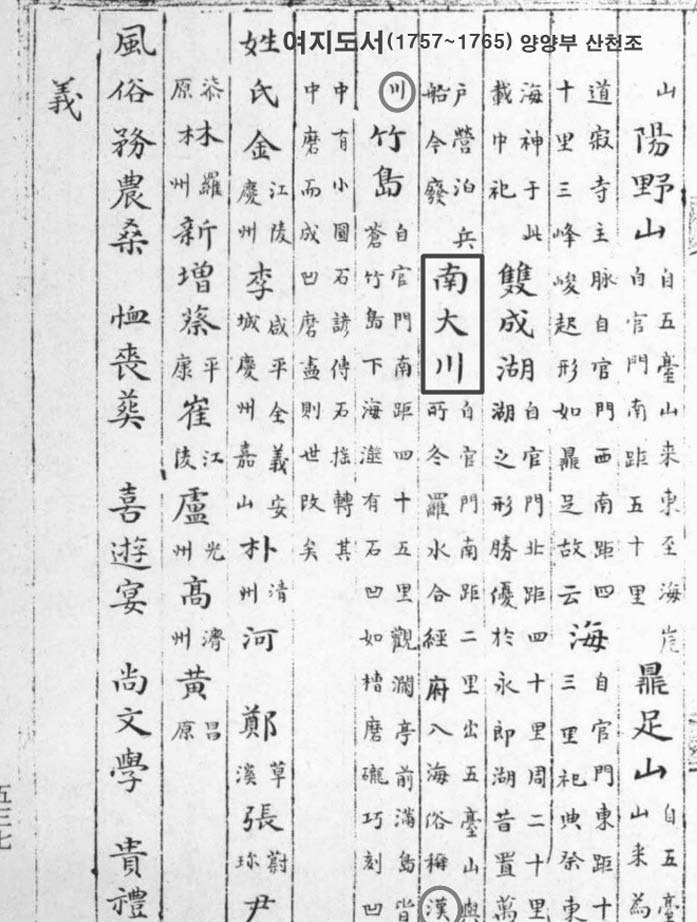 여지도서(1757~1765) 양양부 산천조
山陽野山自五臺山来東至海岸自官門南距五十里鼎足山自五臺山来為
道寂寺主脉自官門西南距四十里三峰峻起形如鼎足故云海自官門東距十三里祀典祭東
海神于此載中祀雙成湖自官門北距四十里周二十里湖之形勝優於永郎湖昔置萬
戶營泊兵船今廢南大川自官門南距二里出五臺山與所冬羅水合經府入海俗稱漢
川竹島自官門南距四十五里觀瀾亭前滿島皆蒼竹島下海澨有石凹如槽磨礲巧刻凹
中有小圓石諺傳石搖轉其中磨而成凹磨盡則世改矣
姓氏金江陵慶州李咸平全義安城慶州嘉山朴清州河鄭草溪張蔚珍尹
漆原林羅州新增蔡平康崔江陵盧光州高濟州黃昌原
風俗務農桑 恤喪葬 喜遊宴 尚文學 貴禮
義
五三七